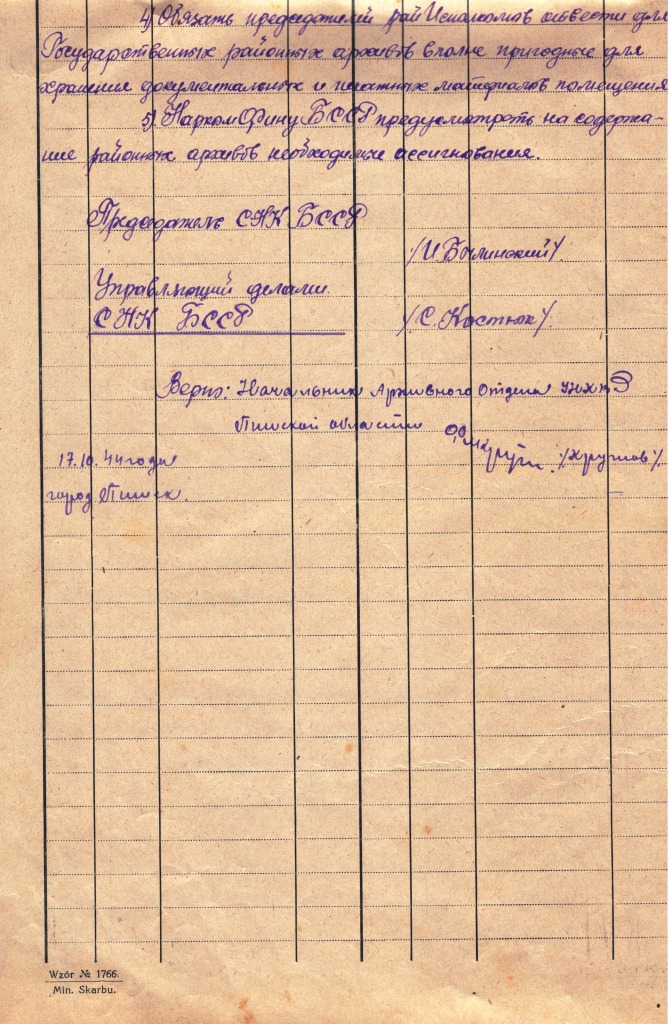 4) Обязать председателей райИсполкомов отвести для
Государственных районных архивов вполне пригодные для
хранения документальных и печатных материалов помещения
5) НаркомФину БССР предусмотреть на содержа-
ние районных архивов необходимые ассигнования.
Председатель СНК БССР
/И.Былинский/.
Управляющий делами
СНК БССР
/С. Костюк/.
Верно: Начальник Архивного Отдела УНКВД
Пинской области
/Хрулов/.
17.10.44 года
город Пинск.
Wzór № 1766.
Min. Skarbu.